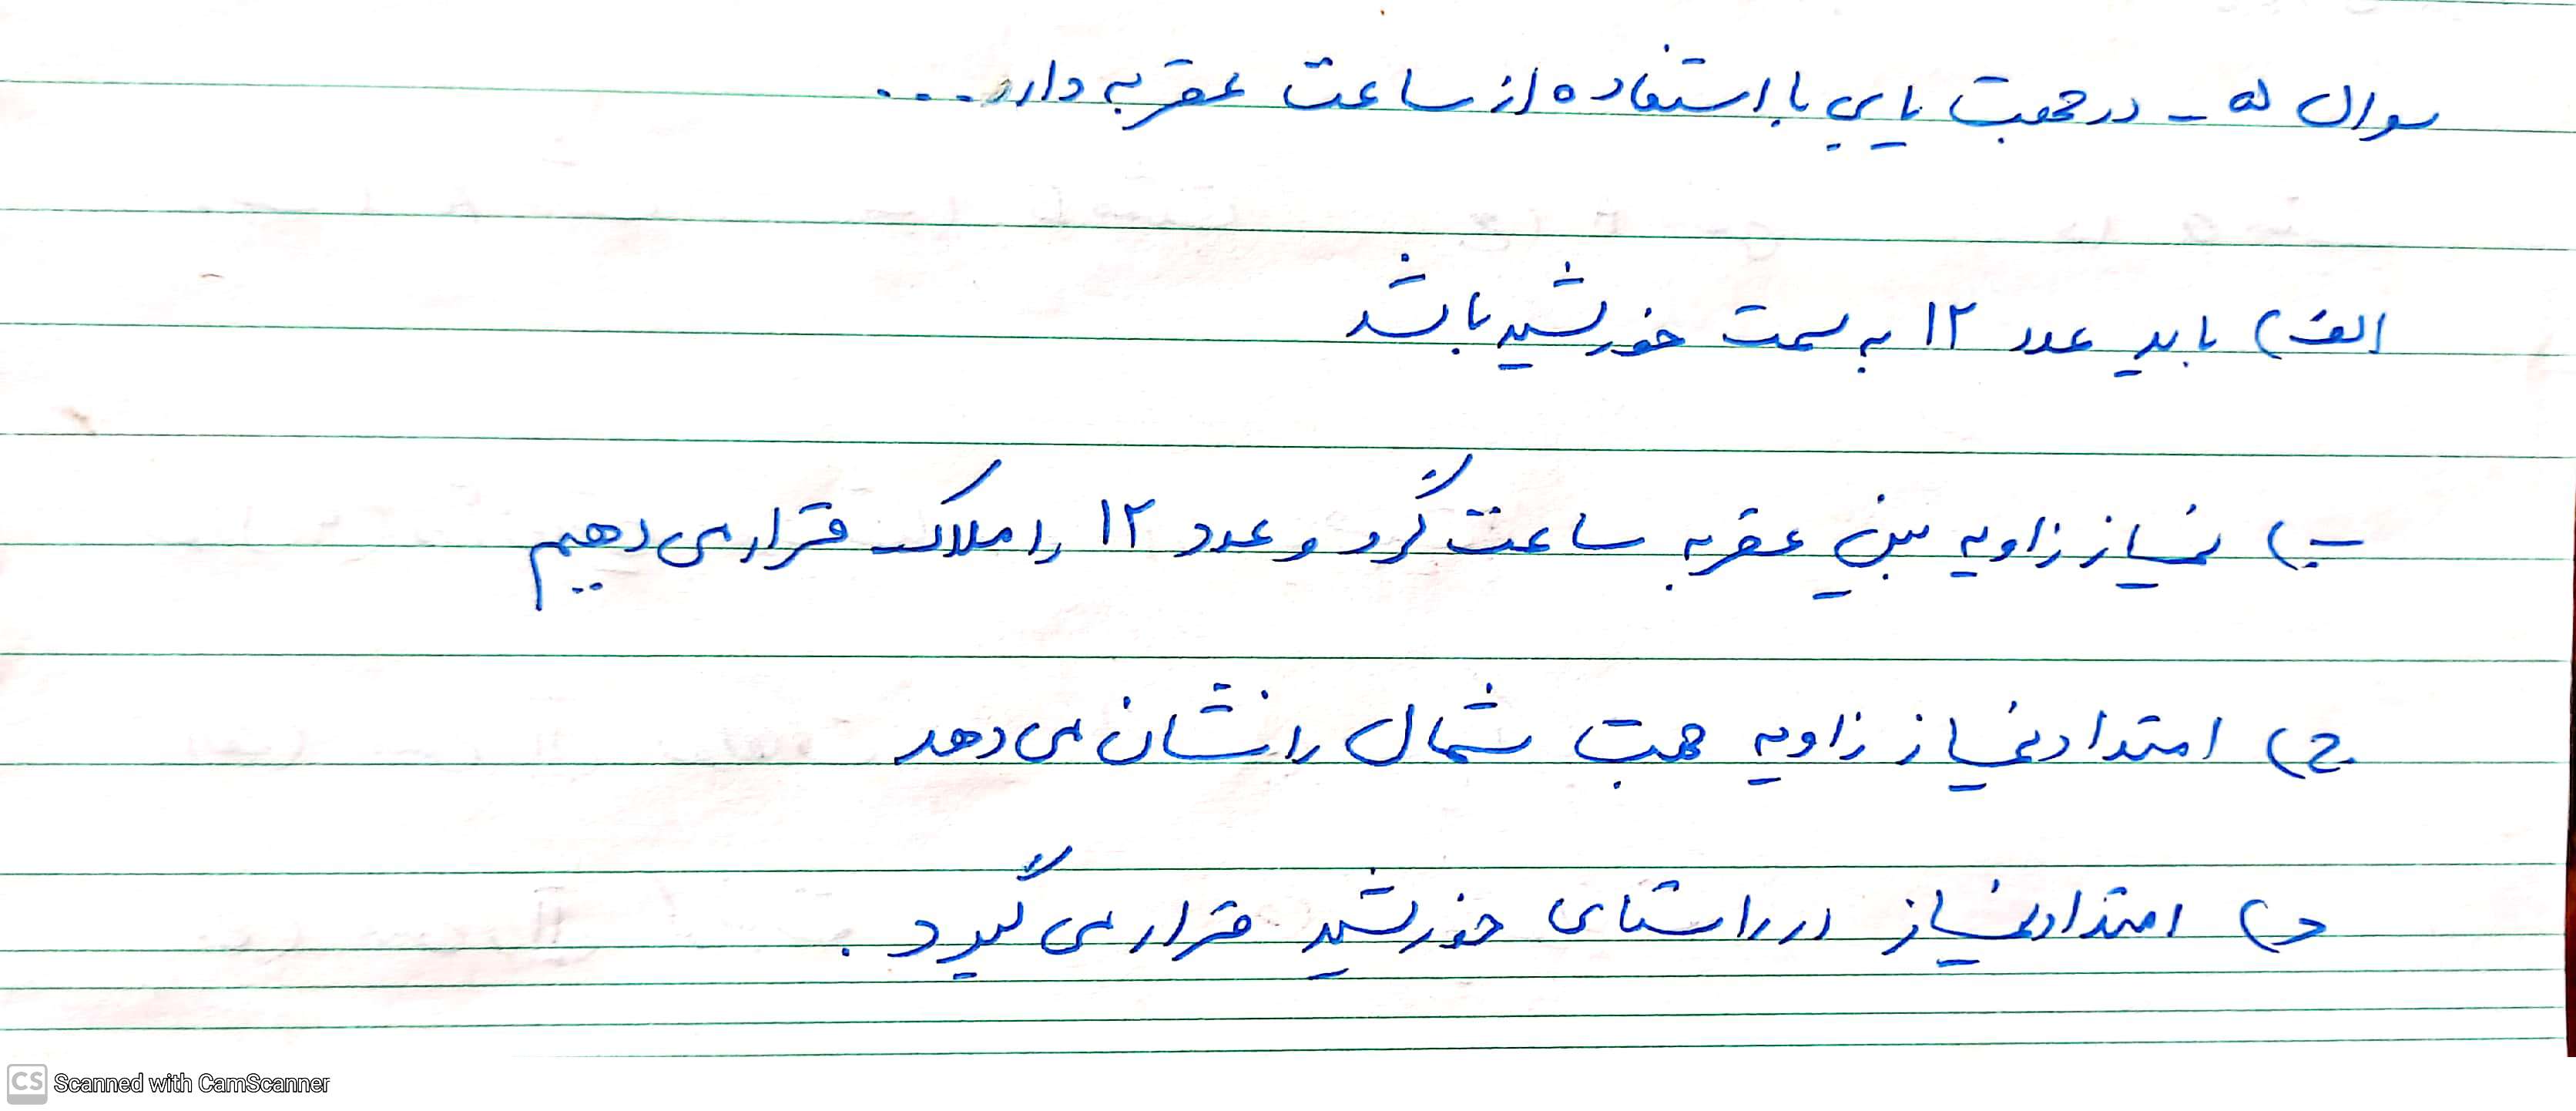 سوال ۵ - در جهت یابی با استفاده از ساعت عقربه دارد....
الف) باید عدد ۱۲ به سمت خورشید باشد
ب) نیمساز زاویه بین عقربه ساعت گرد و عدد ۱۲ را ملاک قرار می دهیم
ج) امتداد نیمساز زاویه جهت شمال را نشان می دهد
د) امتداد نیمساز در راستای خورشید قرار می گیرد .
CS Scanned with CamScanner